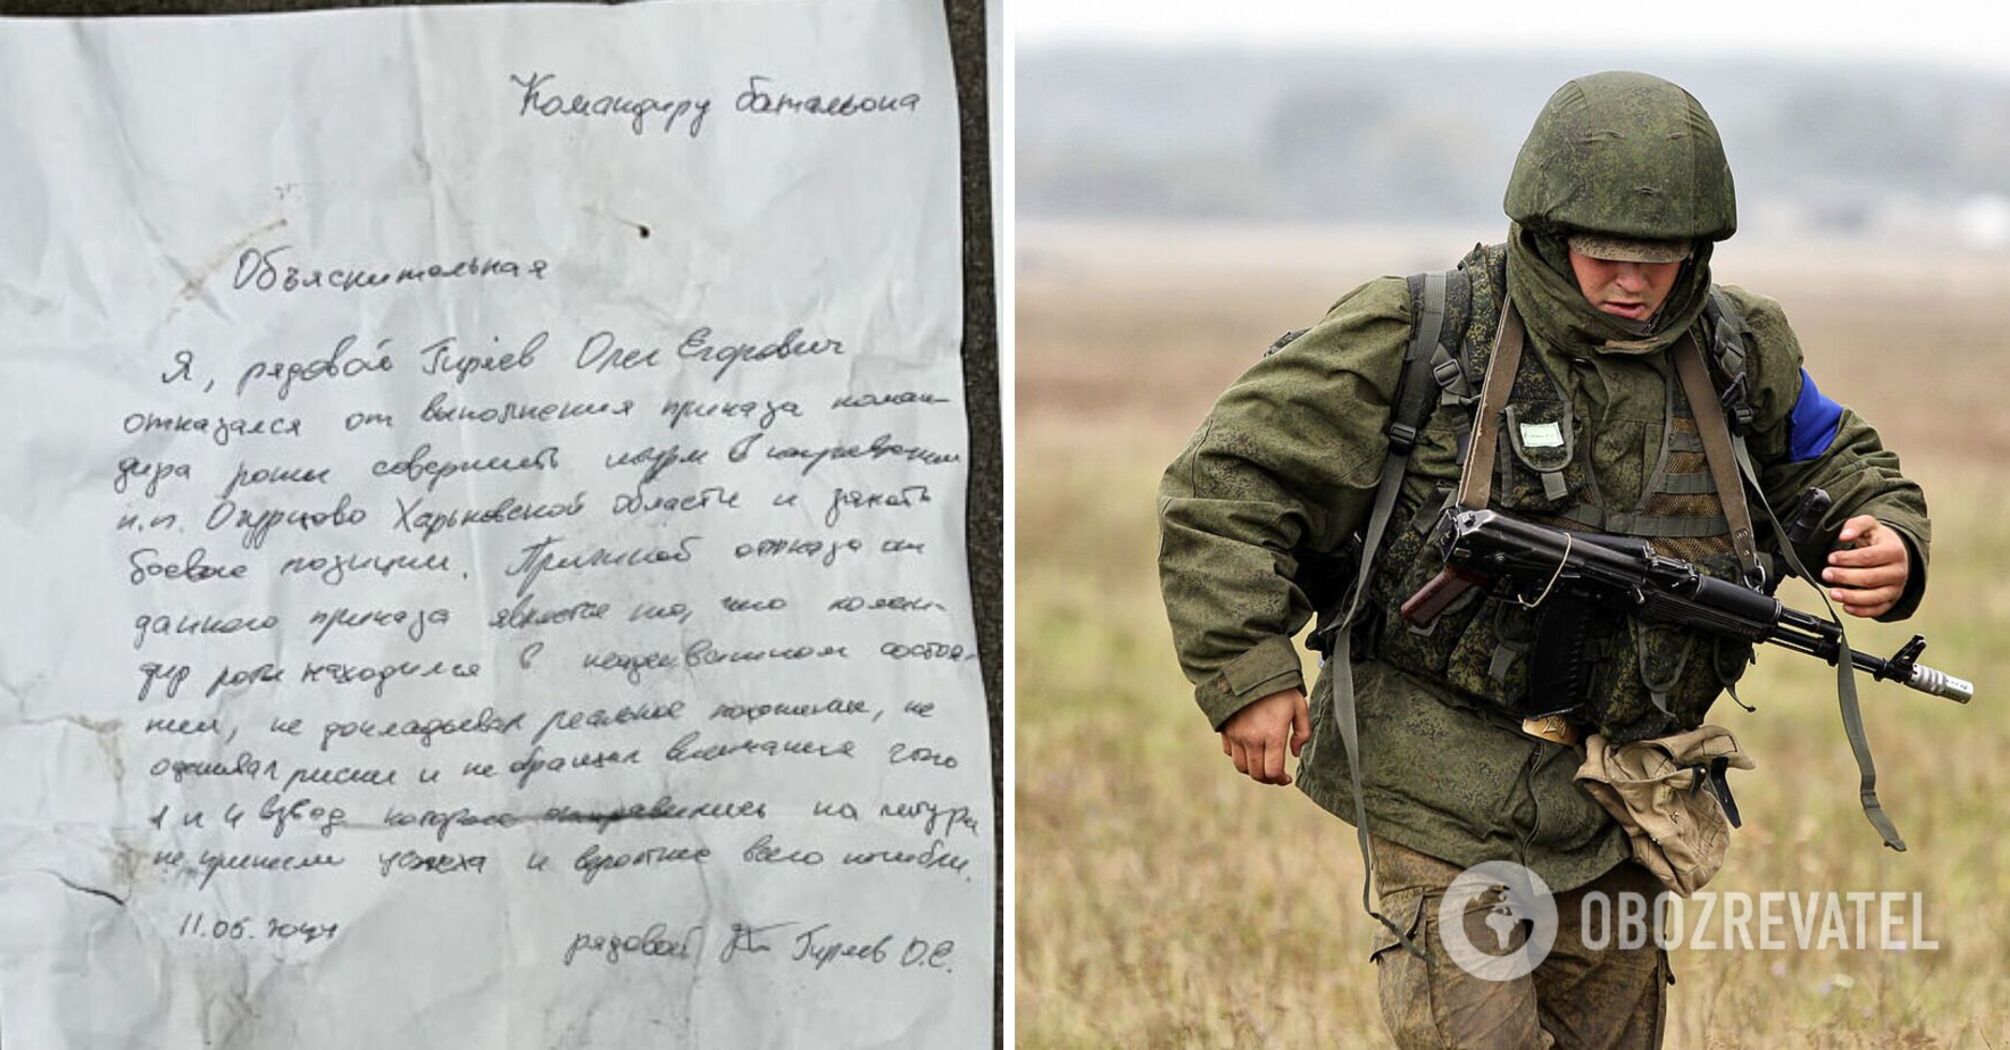 Командиру батальона
Объяснительная
Я, рядовой Гиряев Олег Егорович
отказался от выполнения приказа коман-
дира роты совершить штурм в направлении
н.п. Огурцово Харьковской области и занять
боевые позиции. Причиной отказа от
данного приказа является то, что коман-
дир роты находился в неадекватном состоя-
нии, не докладывал реальное положение, не
оценивал риски и не обращал внимания чего
1 и 4 взвод которые отправились на штурм
не принесли успеха и вероятнее всего погибли.
11.05.2024
рядовой Гиряев О.Е.
OBOZREVATEL